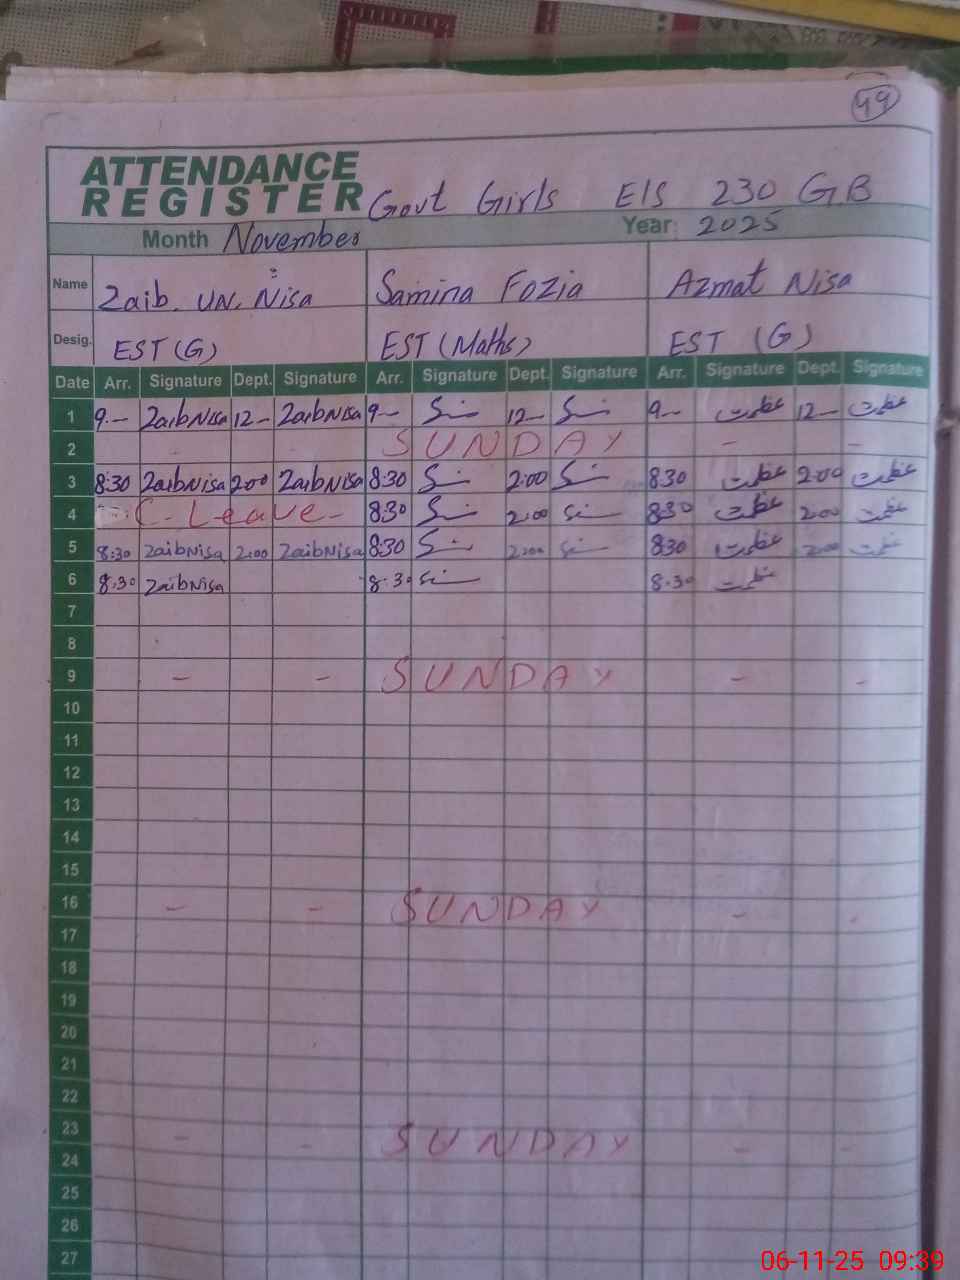 49
ATTENDANCE
REGISTER Govt Girls E/S 230 GB
Month November Year: 2025
Name Zaib. UN. Nisa Samina Fozia Azmat Nisa
Desig. EST (G) EST (Maths) EST (G)
Date Arr. Signature Dept. Signature Arr. Signature Dept. Signature Arr. Signature Dept. Signature
1 9-- ZaibNisa 12- ZaibNisa 9-- 12- 9-- عظمت 12- عظمت
2 SUNDAY - -
3 8:30 ZaibNisa 2:00 ZaibNisa 8:30 2:00 8:30 عظمت 2:00 عظمت
4 C-Leave- 8:30 2:00 8:30 عظمت 2:00 عظمت
5 8:30 ZaibNisa 2:00 ZaibNisa 8:30 2:00 8:30 عظمت 2:00 عظمت
6 8:30 ZaibNisa 8:30 8:30 عظمت
7
8
9 - - SUNDAY - -
10
11
12
13
14
15
16 - - SUNDAY - -
17
18
19
20
21
22
23 - - SUNDAY - -
24
25
26
27
06-11-25 09:39